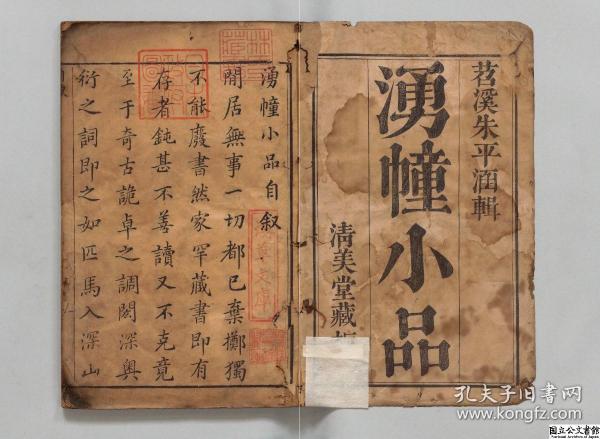 苕溪朱平涵輯
湧幢小品
清美堂藏板
湧幢小品自叙
閒居無事一切都已棄擲獨
不能廢書然家罕藏書即有
存者鈍甚不善讀又不克竟
至于奇古詭卓之調閎深輿
衍之詞即之如匹馬入深山
孔夫子旧书网
www.kongfz.com
国立公文書館
National Archives of Japan